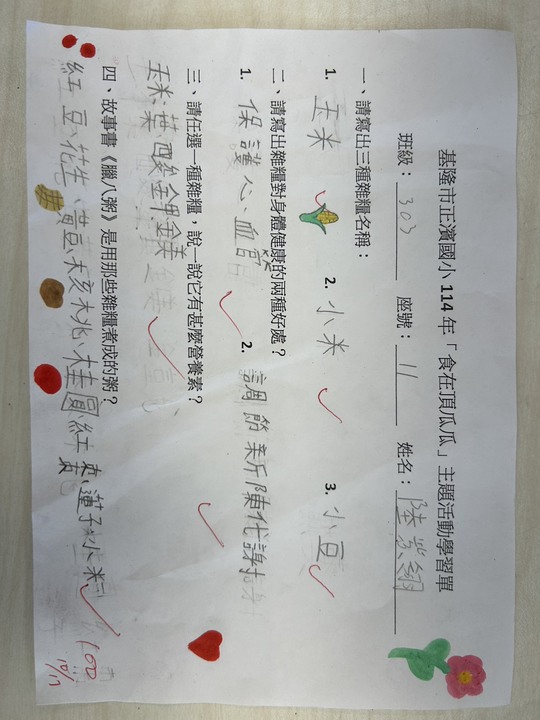 基隆市正濱國小 114 年「食在頂瓜瓜」主題活動學習單
班級：303 座號：11 姓名：陸紫翎
一、請寫出三種雜糧名稱：
1. 玉米 2. 小米 3. 小豆
二、請寫出雜糧對身體健康的兩種好處？
1. 保護心、血管 2. 調節新陳代謝
三、請任選一種雜糧，說一說它有甚麼營養素？
玉米：葉酸、鉀、鎂
四、故事書《臘八粥》是用那些雜糧煮成的粥？
紅豆、花生、黃豆、核桃、桂圓、紅棗、蓮子、小米
100
10/17